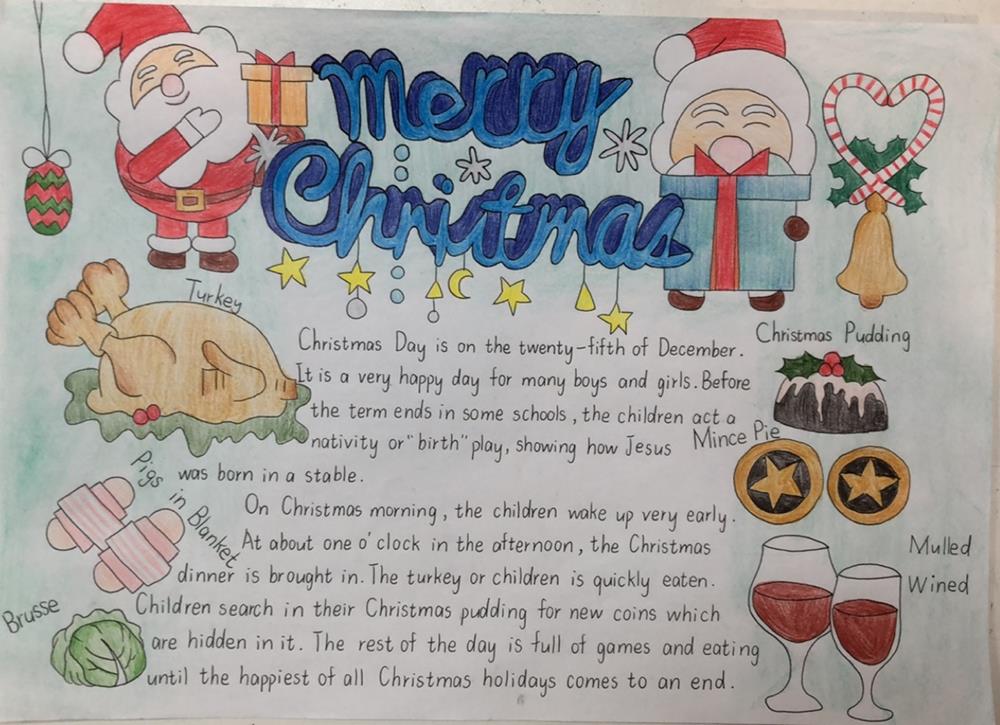 Merry
Christmas
Turkey
Christmas Pudding
Christmas Day is on the twenty-fifth of December.
It is a very happy day for many boys and girls. Before
the term ends in some schools, the children act a
nativity or "birth" play, showing how Jesus
Mince Pie
was born in a stable.
Pigs in Blanket
On Christmas morning, the children wake up very early.
At about one o'clock in the afternoon, the Christmas
dinner is brought in. The turkey or children is quickly eaten.
Mulled
Wined
Brusse
Children search in their Christmas pudding for new coins which
are hidden in it. The rest of the day is full of games and eating
until the happiest of all Christmas holidays comes to an end.